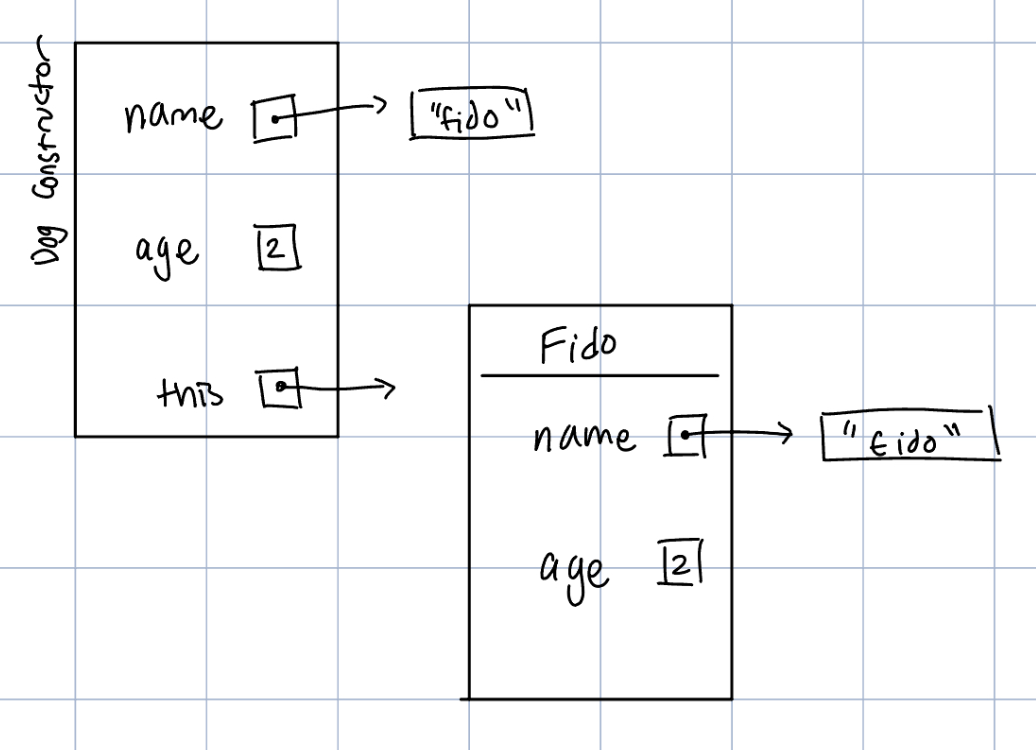 Dog Constructor
name "fido"
age 2
this
Fido
name "fido"
age 2